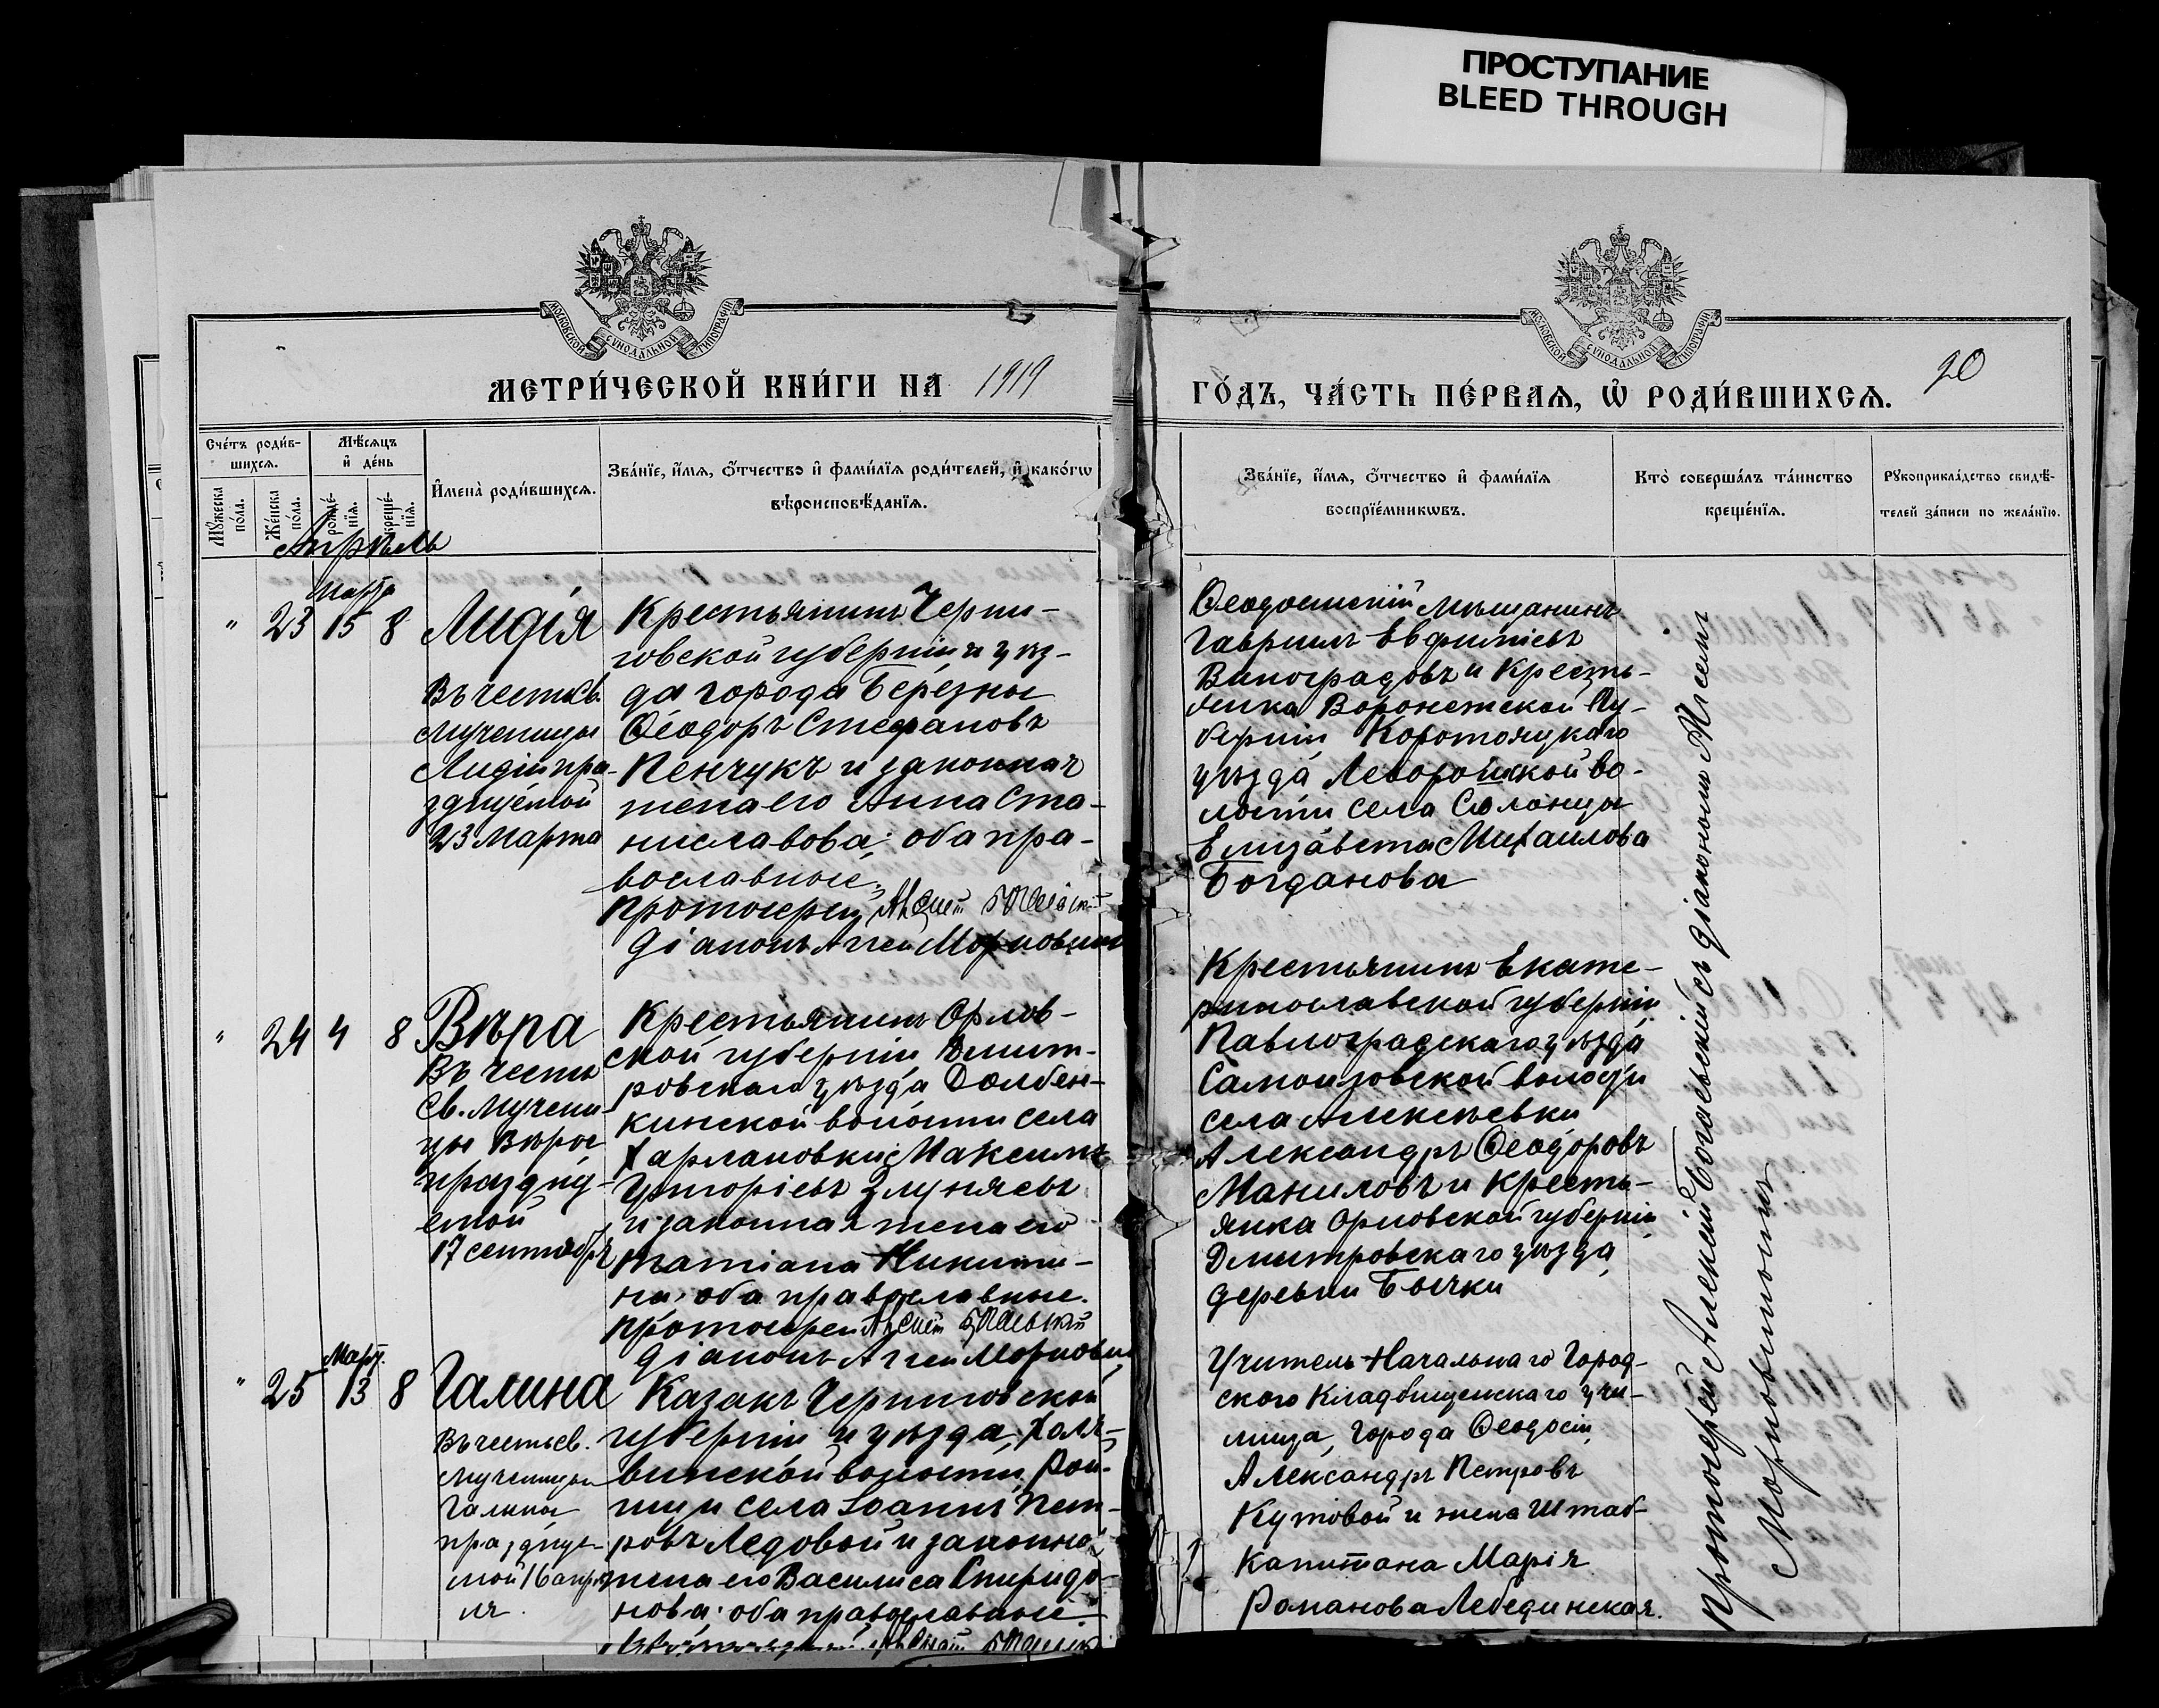 ПРОСТУПАНИЕ
BLEED THROUGH
МОСКОВСКОЙ СѴНОДАЛЬНОЙ ТИПОГРАФІИ
МОСКОВСКОЙ СѴНОДАЛЬНОЙ ТИПОГРАФІИ
МЕТРИ́ЧЕСКОЙ КНИ́ГИ НА 1919
ГО́ДЪ, ЧА́СТЬ ПЕ́РВАѦ, Ѡ҆ РОДИ́ВШИХСѦ.
20
Сче́тъ роди́в-
шихсѧ.
Мѣ́сѧцъ
и҆ де́нь
Мꙋ́жеска
по́ла.
Же́нска
по́ла.
рожде́-
нїѧ.
креще́-
нїѧ.
И҆мена̀ роди́вшихсѧ.
Зва́нїе, и҆́мѧ, ѻ҆́тчество и҆ фами́лїѧ роди́телей, и҆ како́гѡ
вѣроисповѣ́данїѧ.
Зва́нїе, и҆́мѧ, ѻ҆́тчество и҆ фами́лїѧ
воспрїе́мникѡвъ.
Кто̀ соверша́лъ та́инство
креще́нїѧ.
Рꙋкоприкла́дство свидѣ́-
телей за́писи по жела́нїю.
Апрѣль
Марта
" 23 15 8 Лидія
Въ честь св.
мученицы
Лидіи пра-
зднуемой
23 Марта
Крестьянинъ Черни-
говской губерніи и уѣз-
да города Березны
Ѳеодоръ Стефановъ
Пенчукъ и законная
жена его Анна Ста-
ниславова; оба пра-
вославные.
Протоіерей Алексій
Діаконъ Агѳей
Ѳеодосійскій мѣщанинъ
Гавріилъ Евфиміевъ
Виноградовъ и кресть-
янка Воронежской гу-
берніи Коротоякскаго
уѣзда во-
лости села Солонцы
Елизавета Михаилова
Богданова
" 24 4 8 Вѣра
Въ честь
св. мучени-
цы Вѣры
праздну-
емой
17 сентября
Крестьянинъ Орлов-
ской губерніи Дмит-
ровскаго уѣзда Долбен-
кинской волости села
Харлановки Максимъ
Григоріевъ
и законная жена его
Татіана Никити-
на; оба православные.
Протоіерей Алексій
Діаконъ Агѳей
Крестьянинъ Екате-
ринославской губерніи
Павлоградскаго уѣзда
волости
села Алексѣевки
Александръ Ѳеодоровъ
Маниловъ и кресть-
янка Орловской губерніи
Дмитровскаго уѣзда
деревни Бычки
Март.
" 25 13 8 Галина
Въ честь св.
мученицы
Галины
праздну-
мой 16 апрѣ-
ля.
Казакъ Черниговской
губерніи и уѣзда, Халя-
винской волости, Рои-
щи села Іоаннъ Пет-
ровъ Ледовой и законная
жена его Василиса Спиридо-
нова; оба православные
Учитель Начальнаго Город-
ского Кладбищенскаго учи-
лища, города Ѳеодосіи
Александръ Петровъ
Кутовой и жена Штабс-
капитана Марія
Романова Лебединская.
Протоіерей Алексій съ діакономъ Агѳеемъ